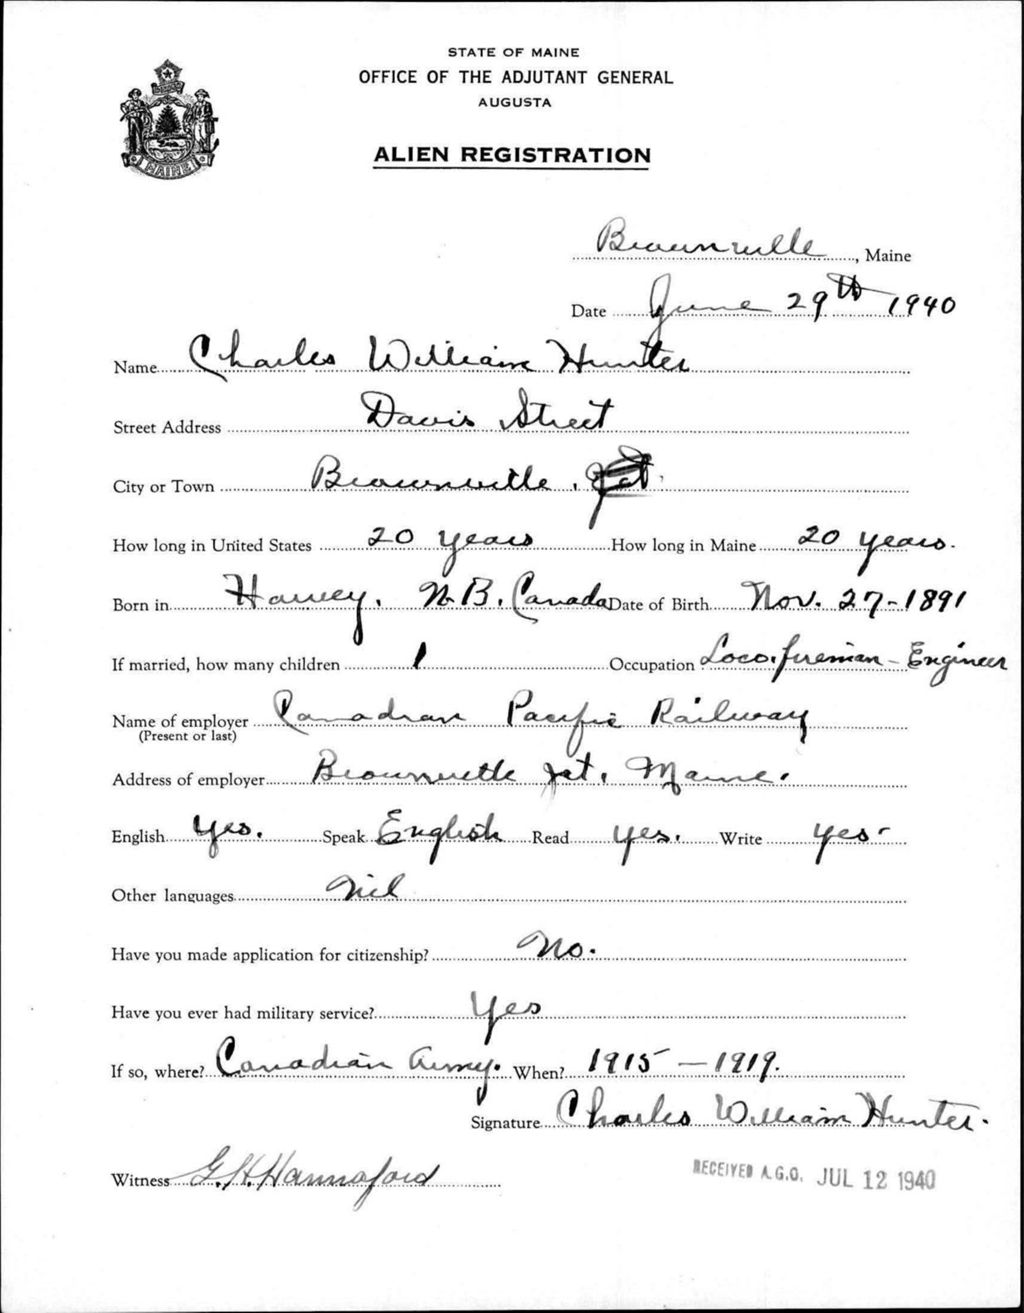 STATE OF MAINE
OFFICE OF THE ADJUTANT GENERAL
AUGUSTA
ALIEN REGISTRATION
MAINE
Brownville, Maine
Date June 29th 1940
Name Charles William Hunter
Street Address Davis Street
City or Town Brownville, Jct.
How long in United States 20 years How long in Maine 20 years.
Born in Harvey, N.B. Canada Date of Birth Nov. 27-1891
If married, how many children 1 Occupation Loco. fireman - Engineer
Name of employer Canadian Pacific Railway
(Present or last)
Address of employer Brownville Jct. Maine.
English Yes. Speak English Read yes. Write yes-
Other languages Nil
Have you made application for citizenship? No.
Have you ever had military service? Yes
If so, where? Canadian Army. When? 1915 - 1919.
Signature Charles William Hunter.
Witness G.H. Hannaford
RECEIVED A.G.O. JUL 12 1940